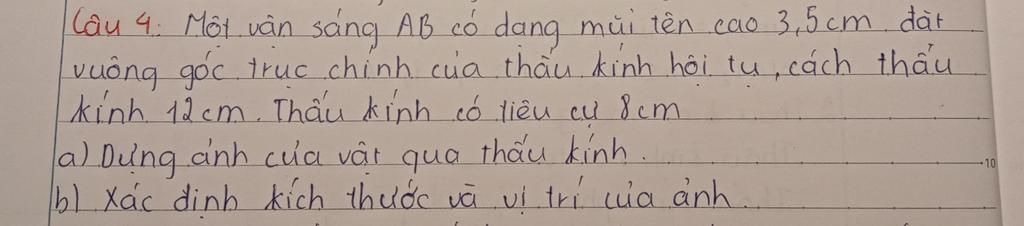 Câu 4: Một vận sáng AB có dạng mũi tên cao 3,5cm đặt
vuông góc trục chính của thấu kính hội tụ, cách thấu
kính 12cm. Thấu kính có tiêu cự 8cm
a) Dựng ảnh của vật qua thấu kính.
10
b) Xác định kích thước và vị trí của ảnh.